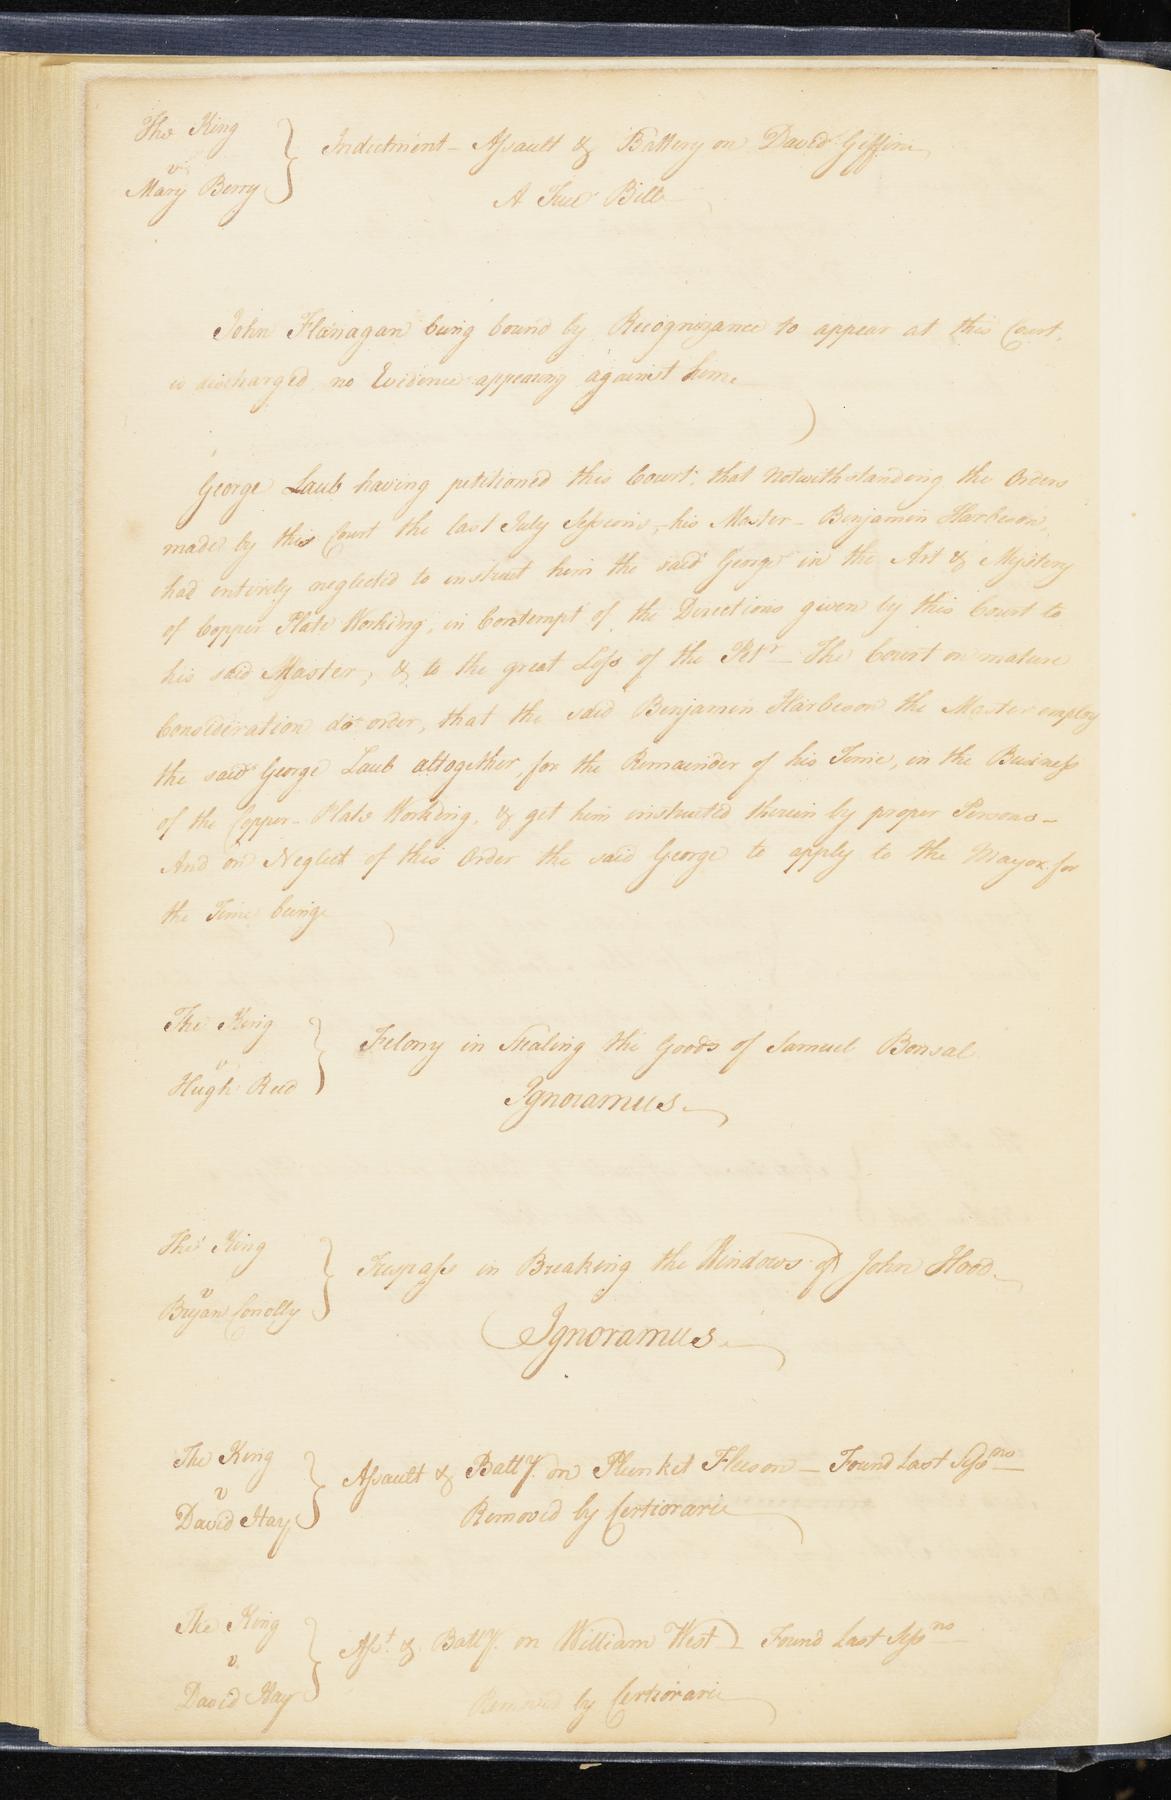 The King
v
Mary Berry
Indictment - Assault & Battery on David Giffin
A True Bill
John Flanagan being bound by Recognizance to appear at this Court,
is discharged no Evidence appearing against him.
George Laub having petitioned this Court, that notwithstanding the Orders
made by this Court the last July Sessions, his Master - Benjamin Harbeson,
had entirely neglected to instruct him the said George in the Art & Mystery
of Copper Plate Working, in Contempt of the Directions given by this Court to
his said Master, & to the great Loss of the Petr - The Court on mature
Consideration do order, that the said Benjamin Harbeson the Master employ
the said George Laub altogether, for the Remainder of his Time, in the Business
of the Copper-Plate Working, & get him instructed therein by proper Persons -
And on Neglect of this Order the said George to apply to the Mayor for
the Time being
The King
v
Hugh Reed
Felony in Stealing the Goods of Samuel Bonsal
Ignoramus
The King
v
Bryan Conolly
Trespass in Breaking the Windows of John Hood
Ignoramus
The King
v
David Hay
Assault & Batty. on Plunket Fleeson - Found Last Sessns
Removed by Certiorari
The King
v.
David Hay
Asst. & Batty. on William West - Found Last Sessns
Removed by Certiorari